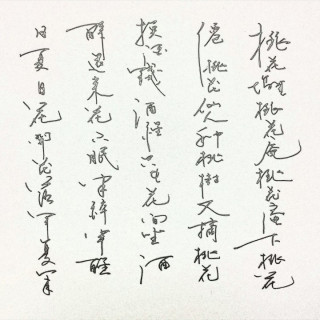 桃花塢裡桃花庵桃花庵下桃花
仙桃花仙人种桃樹又摘桃花
換酒錢酒醒只在花坐酒
醉還來花下眠半醉半醒
日复日花開花落年复年